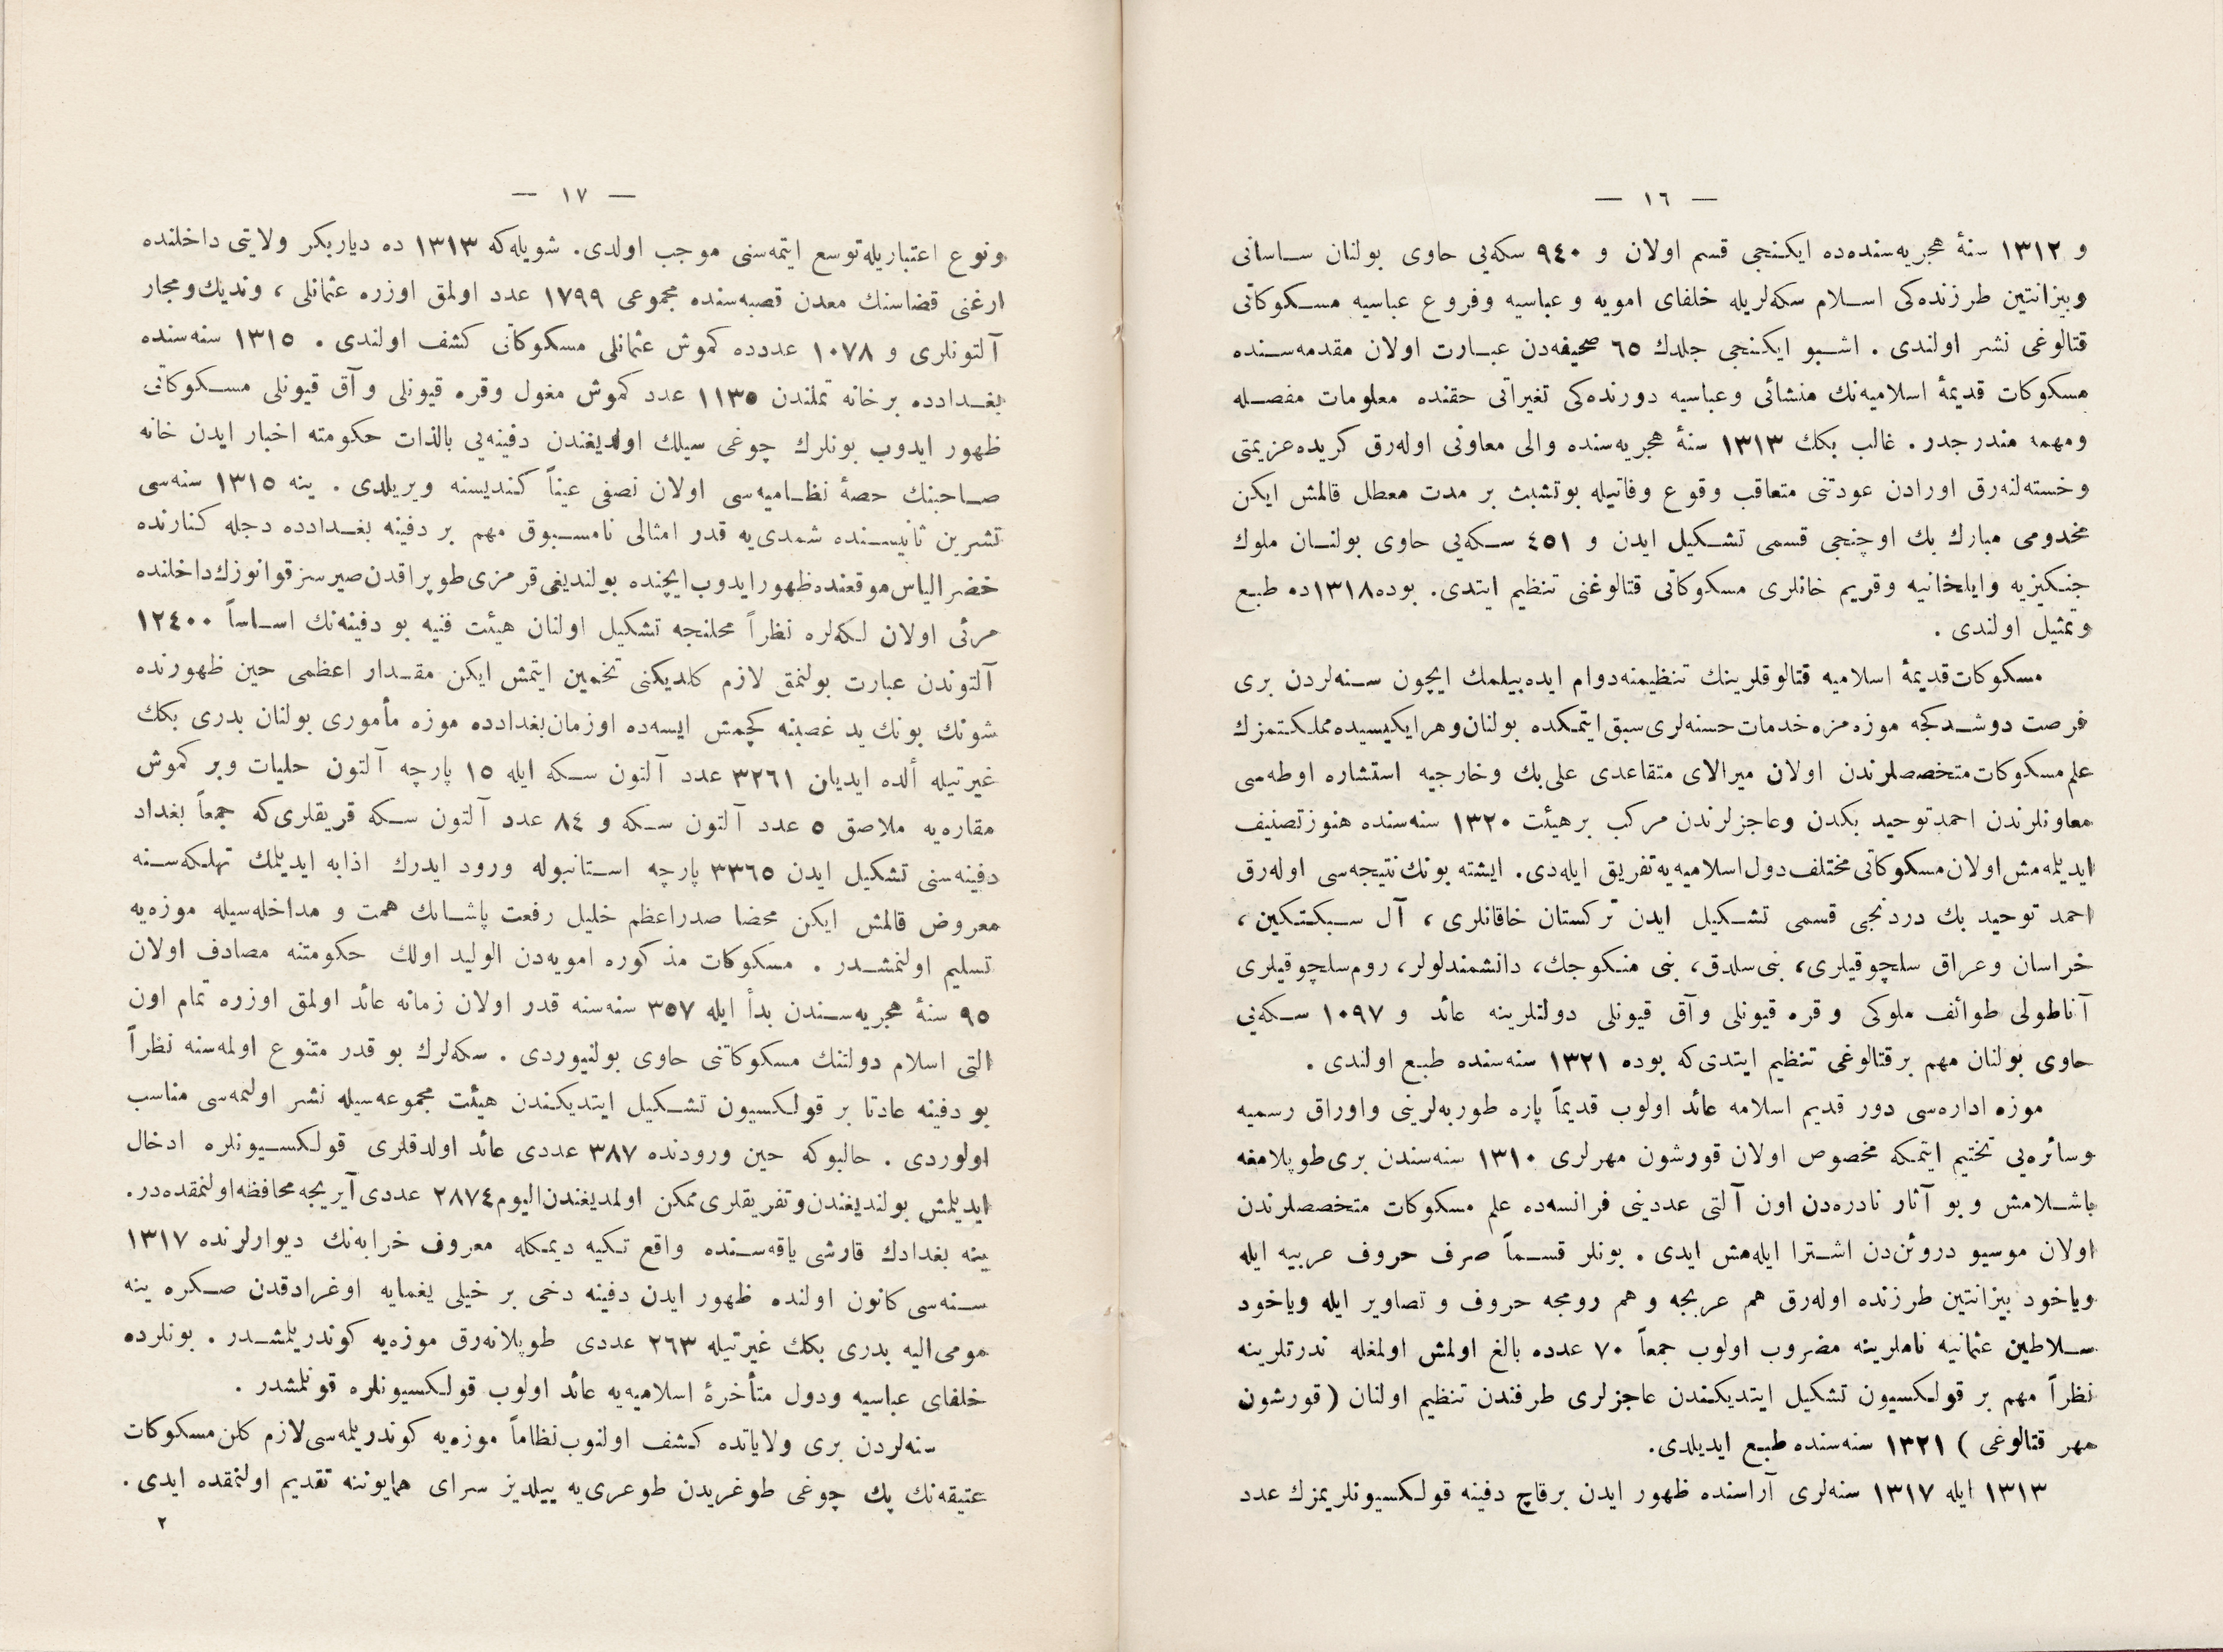 — ١٦ —
و ١٣١٢ سنۀ هجریه‌سنده‌ده ایکنجی قسم اولان و ٩٤٠ سکه‌یی حاوی بولنان ساسانی
وبیزانتین طرزنده‌کی اسلام سکه‌لریله خلفای امویه و عباسیه وفروع عباسیه مسکوکاتی
قتالوغی نشر اولندی . اشبو ایکنجی جلدك ٦٥ صحیفه‌دن عبارت اولان مقدمه‌سنده
مسکوکات قدیمۀ اسلامیه‌نك منشائی وعباسیه دورنده‌کی تغیراتی حقنده معلومات مفصله
ومهمه مندرجدر . غالب بكك ١٣١٣ سنۀ هجریه‌سنده والی معاونی اوله‌رق کریده عزیمتی
وخسته‌لنه‌رق اورادن عودتنی متعاقب وقوع وفاتیله بوتشبث بر مدت معطل قالمش ایکن
مخدومی مبارك بك اوچنجی قسمی تشکیل ایدن و ٤٥١ سکه‌یی حاوی بولنان ملوك
جنکیزیه وایلخانیه وقریم خانلری مسکوکاتی قتالوغنی تنظیم ایتدی. بوده ١٣١٨ ده طبع
وتمثیل اولندی .
مسکوکات قدیمۀ اسلامیه قتالوقلرینك تنظیمنه دوام ایده‌بیلمك ایچون سنه‌لردن بری
فرصت دوشدکجه موزه‌مزه خدمات حسنه‌لری سبق ایتمکده بولنان وهر ایکیسیده مملکتمزك
علم مسکوکات متخصصلرندن اولان میرالای متقاعدی علی بك وخارجیه استشاره اوطه‌سی
معاونلرندن احمد توحید بکدن وعاجزلرندن مرکب برهیئت ١٣٢٠ سنه‌سنده هنوز تصنیف
ایدیلمه‌مش اولان مسکوکاتی مختلف دول اسلامیه‌یه تفریق ایله‌دی. ایشته بونك نتیجه‌سی اوله‌رق
احمد توحید بك دردنجی قسمی تشکیل ایدن ترکستان خاقانلری ، آل سبکتکین ،
خراسان وعراق سلچوقیلری، بنی سلدق، بنی منکوجك، دانشمندلولر، روم سلچوقیلری
آناطولی طوائف ملوکی و قره قیونلی وآق قیونلی دولتلرینه عائد و ١٠٩٧ سکه‌یی
حاوی بولنان مهم برقتالوغی تنظیم ایتدی‌که بوده ١٣٢١ سنه‌سنده طبع اولندی .
موزه اداره‌سی دور قدیم اسلامه عائد اولوب قدیماً پاره طوربه‌لرینی واوراق رسمیه
وسائره‌یی تختیم ایتمکه مخصوص اولان قورشون مهرلری ١٣١٠ سنه‌سندن بری طوپلامغه
باشلامش وبو آثار نادره‌دن اون آلتی عددینی فرانسه‌ده علم مسکوکات متخصصلرندن
اولان موسیو دروئن‌دن اشترا ایله‌مش ایدی . بونلر قسماً صرف حروف عربیه ایله
ویاخود بیزانتین طرزنده اوله‌رق هم عربجه و هم رومجه حروف و تصاویر ایله ویاخود
سلاطین عثمانیه ناملرینه مضروب اولوب جمعاً ٧٠ عدده بالغ اولمش اولمغله ندرتلرینه
نظراً مهم بر قولکسیون تشکیل ایتدیکندن عاجزلری طرفندن تنظیم اولنان ( قورشون
مهر قتالوغی ) ١٣٢١ سنه‌سنده طبع ایدیلدی.
١٣١٣ ایله ١٣١٧ سنه‌لری آراسنده ظهور ایدن برقاچ دفینه قولکسیونلریمزك عدد
— ١٧ —
ونوع اعتباریله توسع ایتمه‌سنی موجب اولدی. شویله‌که ١٣١٣ ده دیاربکر ولایتی داخلنده
ارغنی قضاسنك معدن قصبه‌سنده مجموعی ١٧٩٩ عدد اولمق اوزره عثمانلی ، وندیك ومجار
آلتونلری و ١٠٧٨ عددده کموش عثمانلی مسکوکاتی کشف اولندی . ١٣١٥ سنه‌سنده
بغدادده برخانه تملندن ١١٣٥ عدد کموش مغول وقره قیونلی وآق قیونلی مسکوکاتی
ظهور ایدوب بونلرك چوغی سیلك اولدیغندن دفینه‌یی بالذات حکومته اخبار ایدن خانه
صاحبنك حصۀ نظامیه‌سی اولان نصفی عیناً کندیسنه ویریلدی . ینه ١٣١٥ سنه‌سی
تشرین ثانیسنده شمدی‌یه قدر امثالی نامسبوق مهم بر دفینه بغدادده دجله کنارنده
خضر الیاس موقعنده ظهور ایدوب ایچنده بولندیغی قرمزی طوپراقدن صیرسز قوانوزك داخلنده
مرئی اولان لکه‌لره نظراً محلنجه تشکیل اولنان هیئت فنیه بو دفینه‌نك اساساً ١٢٤٠٠
آلتوندن عبارت بولنمق لازم کلدیکنی تخمین ایتمش ایکن مقدار اعظمی حین ظهورنده
شونك بونك ید غصبنه کچمش ایسه‌ده اوزمان بغدادده موزه مأموری بولنان بدری بكك
غیرتیله ألده ایدیلن ٣٢٦١ عدد آلتون سکه ایله ١٥ پارچه آلتون حلیات وبر کموش
مقاره‌یه ملاصق ٥ عدد آلتون سکه و ٨٤ عدد آلتون سکه قریقلری‌که جمعاً بغداد
دفینه‌سنی تشکیل ایدن ٣٣٦٥ پارچه استانبوله ورود ایدرك اذابه ایدیلمك تهلکه‌سنه
معروض قالمش ایکن محضا صدراعظم خلیل رفعت پاشانك همت و مداخله‌سیله موزه‌یه
تسلیم اولنمشدر . مسکوکات مذکوره امویه‌دن الولید اولك حکومتنه مصادف اولان
٩٥ سنۀ هجریه‌سندن بدأ ایله ٣٥٧ سنه‌سنه قدر اولان زمانه عائد اولمق اوزره تمام اون
التی اسلام دولتنك مسکوکاتنی حاوی بولنیوردی . سکه‌لرك بو قدر متنوع اولمه‌سنه نظراً
بو دفینه عادتا بر قولکسیون تشکیل ایتدیکندن هیئت مجموعه‌سیله نشر اولنمه‌سی مناسب
اولوردی . حالبوکه حین ورودنده ٣٨٧ عددی عائد اولدقلری قولکسیونلره ادخال
ایدیلمش بولندیغندن وتفریقلری ممکن اولمدیغندن الیوم ٢٨٧٤ عددی آیریجه محافظه اولنمقده‌در.
ینه بغدادك قارشی یاقه‌سنده واقع تکیه دیمکله معروف خرابه‌نك دیوارلرنده ١٣١٧
سنه‌سی کانون اولنده ظهور ایدن دفینه دخی بر خیلی یغمایه اوغرادقدن صکره ینه
مومی‌الیه بدری بكك غیرتیله ٢٦٣ عددی طوپلانه‌رق موزه‌یه کوندریلمشدر . بونلرده
خلفای عباسیه ودول متأخرۀ اسلامیه‌یه عائد اولوب قولکسیونلره قونلمشدر .
سنه‌لردن بری ولایاتده کشف اولنوب نظاماً موزه‌یه کوندریلمه‌سی لازم کلن مسکوکات
عتیقه‌نك پك چوغی طوغریدن طوعری‌یه ییلدیز سرای همایوننه تقدیم اولنمقده ایدی .
٢